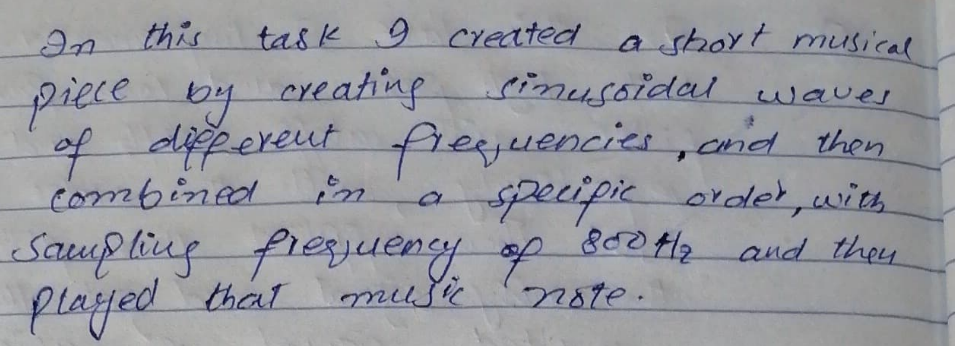 In this task I created a short musical
piece by creating sinusoidal waves
of different frequencies, and then
combined in a specific order, with
sampling frequency of 800 Hz and then
played that music note.